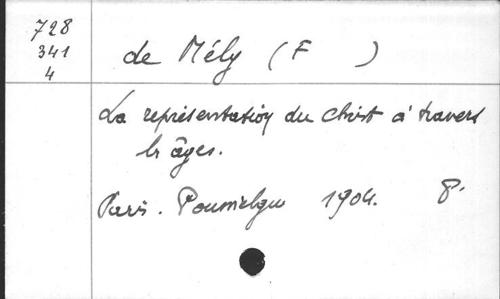 728
341
4
de Mély (F )
La représentation du Christ à travers
les âges.
Paris. 1904. 8.